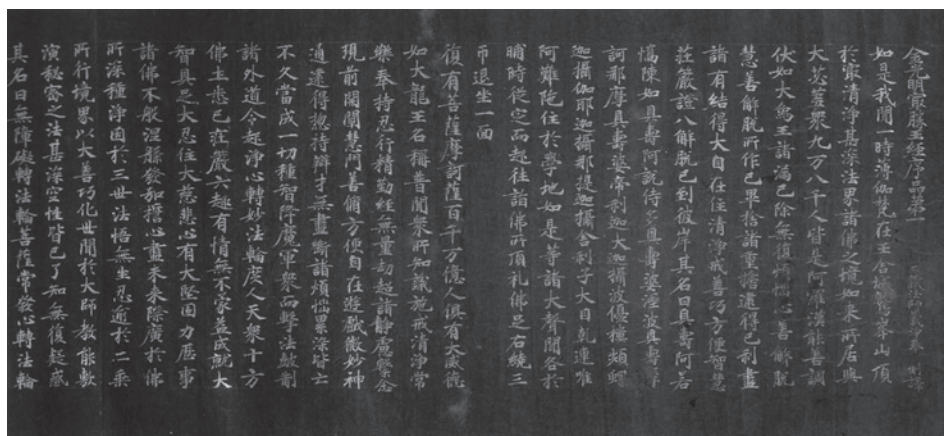 金光明最勝王經序品第一 三藏法師義淨奉 制譯
如是我聞一時薄伽梵在王舍城鷲峯山頂
於最清淨甚深法界諸佛之境如來所居與
大苾蒭衆九万八千人皆是阿羅漢能善調
伏如大象王諸漏已除無復煩惱心善解脫
慧善解脫所作已畢捨諸重擔逮得己利盡
諸有結得大自在住清淨戒善巧方便智慧
莊嚴證八解脫已到彼岸其名曰具壽阿若
憍陳如具壽阿說侍多具壽婆濕波具壽摩
訶那摩具壽婆帝利迦大迦攝波優樓頻螺
迦攝伽耶迦攝那提迦攝舍利子大目乾連唯
阿難陀住於學地如是等諸大聲聞各於
晡時從定而起往詣佛所頂礼佛足右繞三
帀退坐一面
復有菩薩摩訶薩百千万億人俱有大威德
如大龍王名稱普聞衆所知識施戒清淨常
樂奉持忍行精勤經無量劫超諸靜慮繫念
現前開闡慧門善脩方便自在遊戲微妙神
通逮得惣持辯才無盡斷諸煩惱累染皆亡
不久當成一切種智降魔軍衆而擊法鼓制
諸外道令起淨心轉妙法輪度人天衆十方
佛土悉已莊嚴六趣有情無不蒙益成就大
智具足大忍住大慈悲心有大堅固力歷事
諸佛不般涅槃發弘誓心盡未來際廣於佛
所深種淨因於三世法悟無生忍逾於二乘
所行境界以大善巧化世間於大師教能敷
演秘密之法甚深空性皆已了知無復疑惑
其名曰無障礙轉法輪菩薩常發心轉法輪